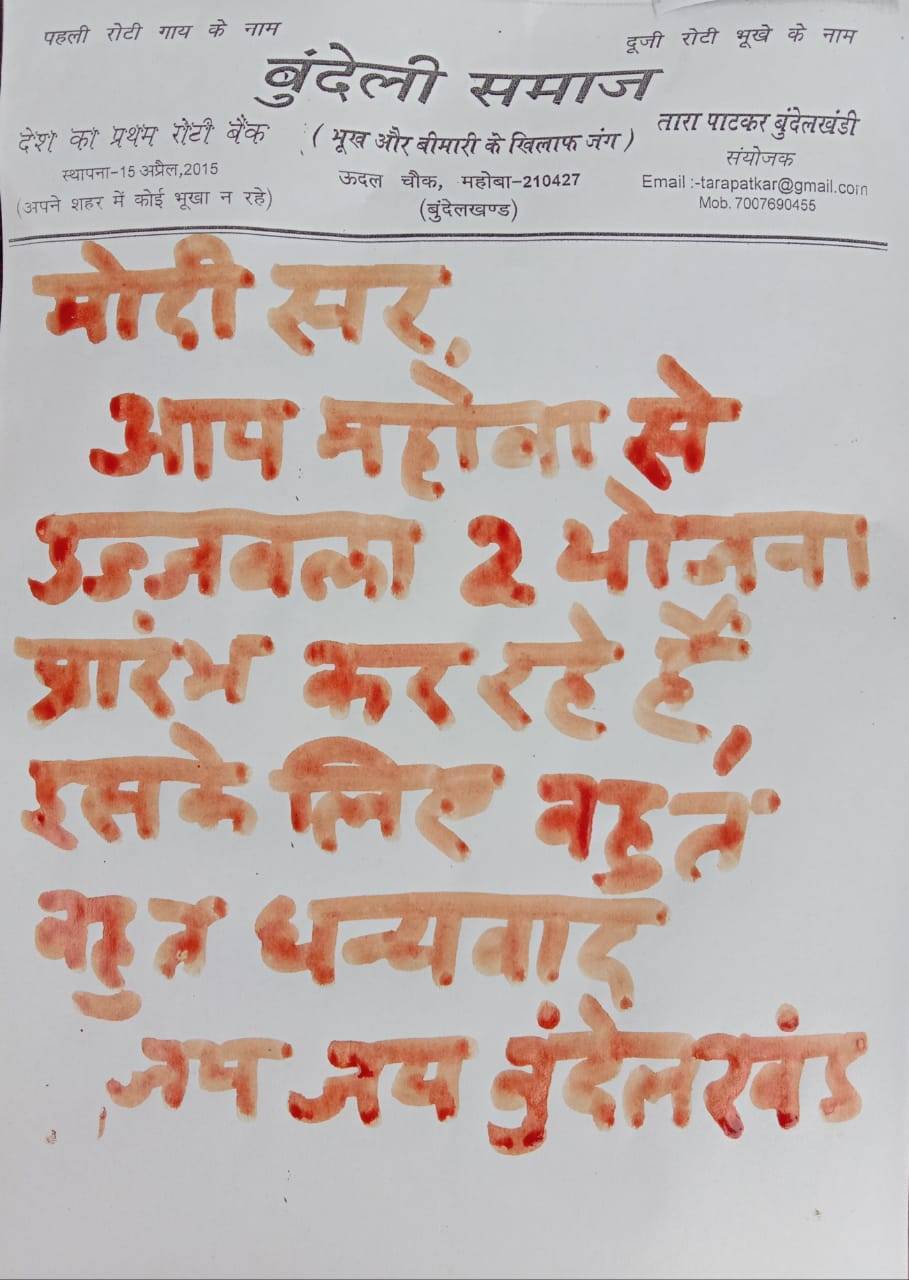 पहली रोटी गाय के नाम
दूजी रोटी भूखे के नाम
बुंदेली समाज
देश का प्रथम रोटी बैंक
स्थापना-15 अप्रैल,2015
(अपने शहर में कोई भूखा न रहे)
( भूख और बीमारी के खिलाफ जंग )
ऊदल चौक, महोबा-210427
(बुंदेलखण्ड)
तारा पाटकर बुंदेलखंडी
संयोजक
Email :-tarapatkar@gmail.com
Mob. 7007690455
मोदी सर,
आप महोबा से
उज्जवला 2 योजना
प्रारंभ कर रहे हैं,
इसके लिए बहुत
बहुत धन्यवाद
जय जय बुंदेलखंड